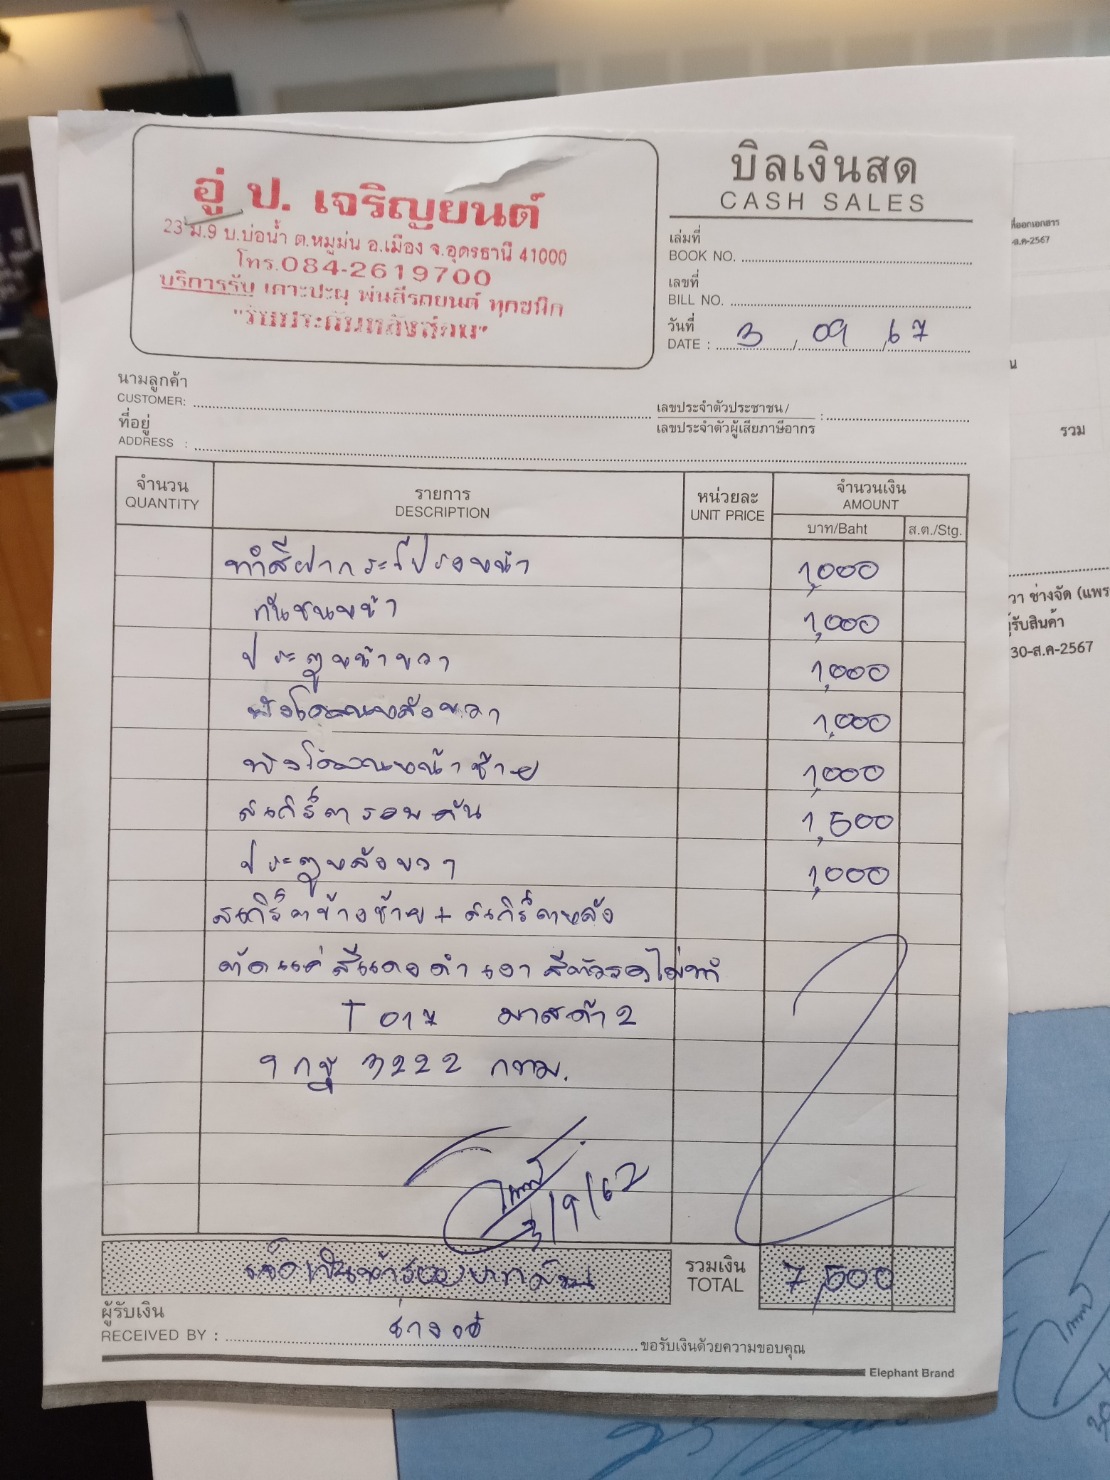 อู่ ป. เจริญยนต์
23 ม.9 บ.บ่อน้ำ ต.หมูม่น อ.เมือง จ.อุดรธานี 41000
โทร.084-2619700
บริการรับ เคาะปะผุ พ่นสีรถยนต์ ทุกชนิด
"รับประกันหลังส่อม"
บิลเงินสด
CASH SALES
เล่มที่
BOOK NO.
เลขที่
BILL NO.
วันที่
DATE : 3 / 09 / 67
นามลูกค้า
CUSTOMER:
เลขประจำตัวประชาชน/
เลขประจำตัวผู้เสียภาษีอากร :
ที่อยู่
ADDRESS :
จำนวน รายการ หน่วยละ จำนวนเงิน
QUANTITY DESCRIPTION UNIT PRICE AMOUNT
บาท/Baht ส.ต./Stg.
ทำสีฝากระโปรงหน้า 1,000
กันชนหน้า 1,000
ประตูหน้าขวา 1,000
บังโคลนหลังขวา 1,000
บังโคลนหน้าซ้าย 1,000
สเกิร์ตรอบคัน 1,500
ประตูหลังขวา 1,000
สเกิร์ตข้างซ้าย + สเกิร์ตหลัง
ตัดแค่สีแดงดำเอา สีตัวรถไม่ทำ
มาสด้า 2
9 กฐ 3222 กทม.
3/9/67
เจ็ดพันห้าร้อยบาทถ้วน
รวมเงิน
TOTAL 7,500
ผู้รับเงิน
RECEIVED BY :
ขอรับเงินด้วยความขอบคุณ
Elephant Brand
ที่ออกเอกสาร
รวม
วา ช่างจัด (แพร
ผู้รับสินค้า
30-ส.ค-2567